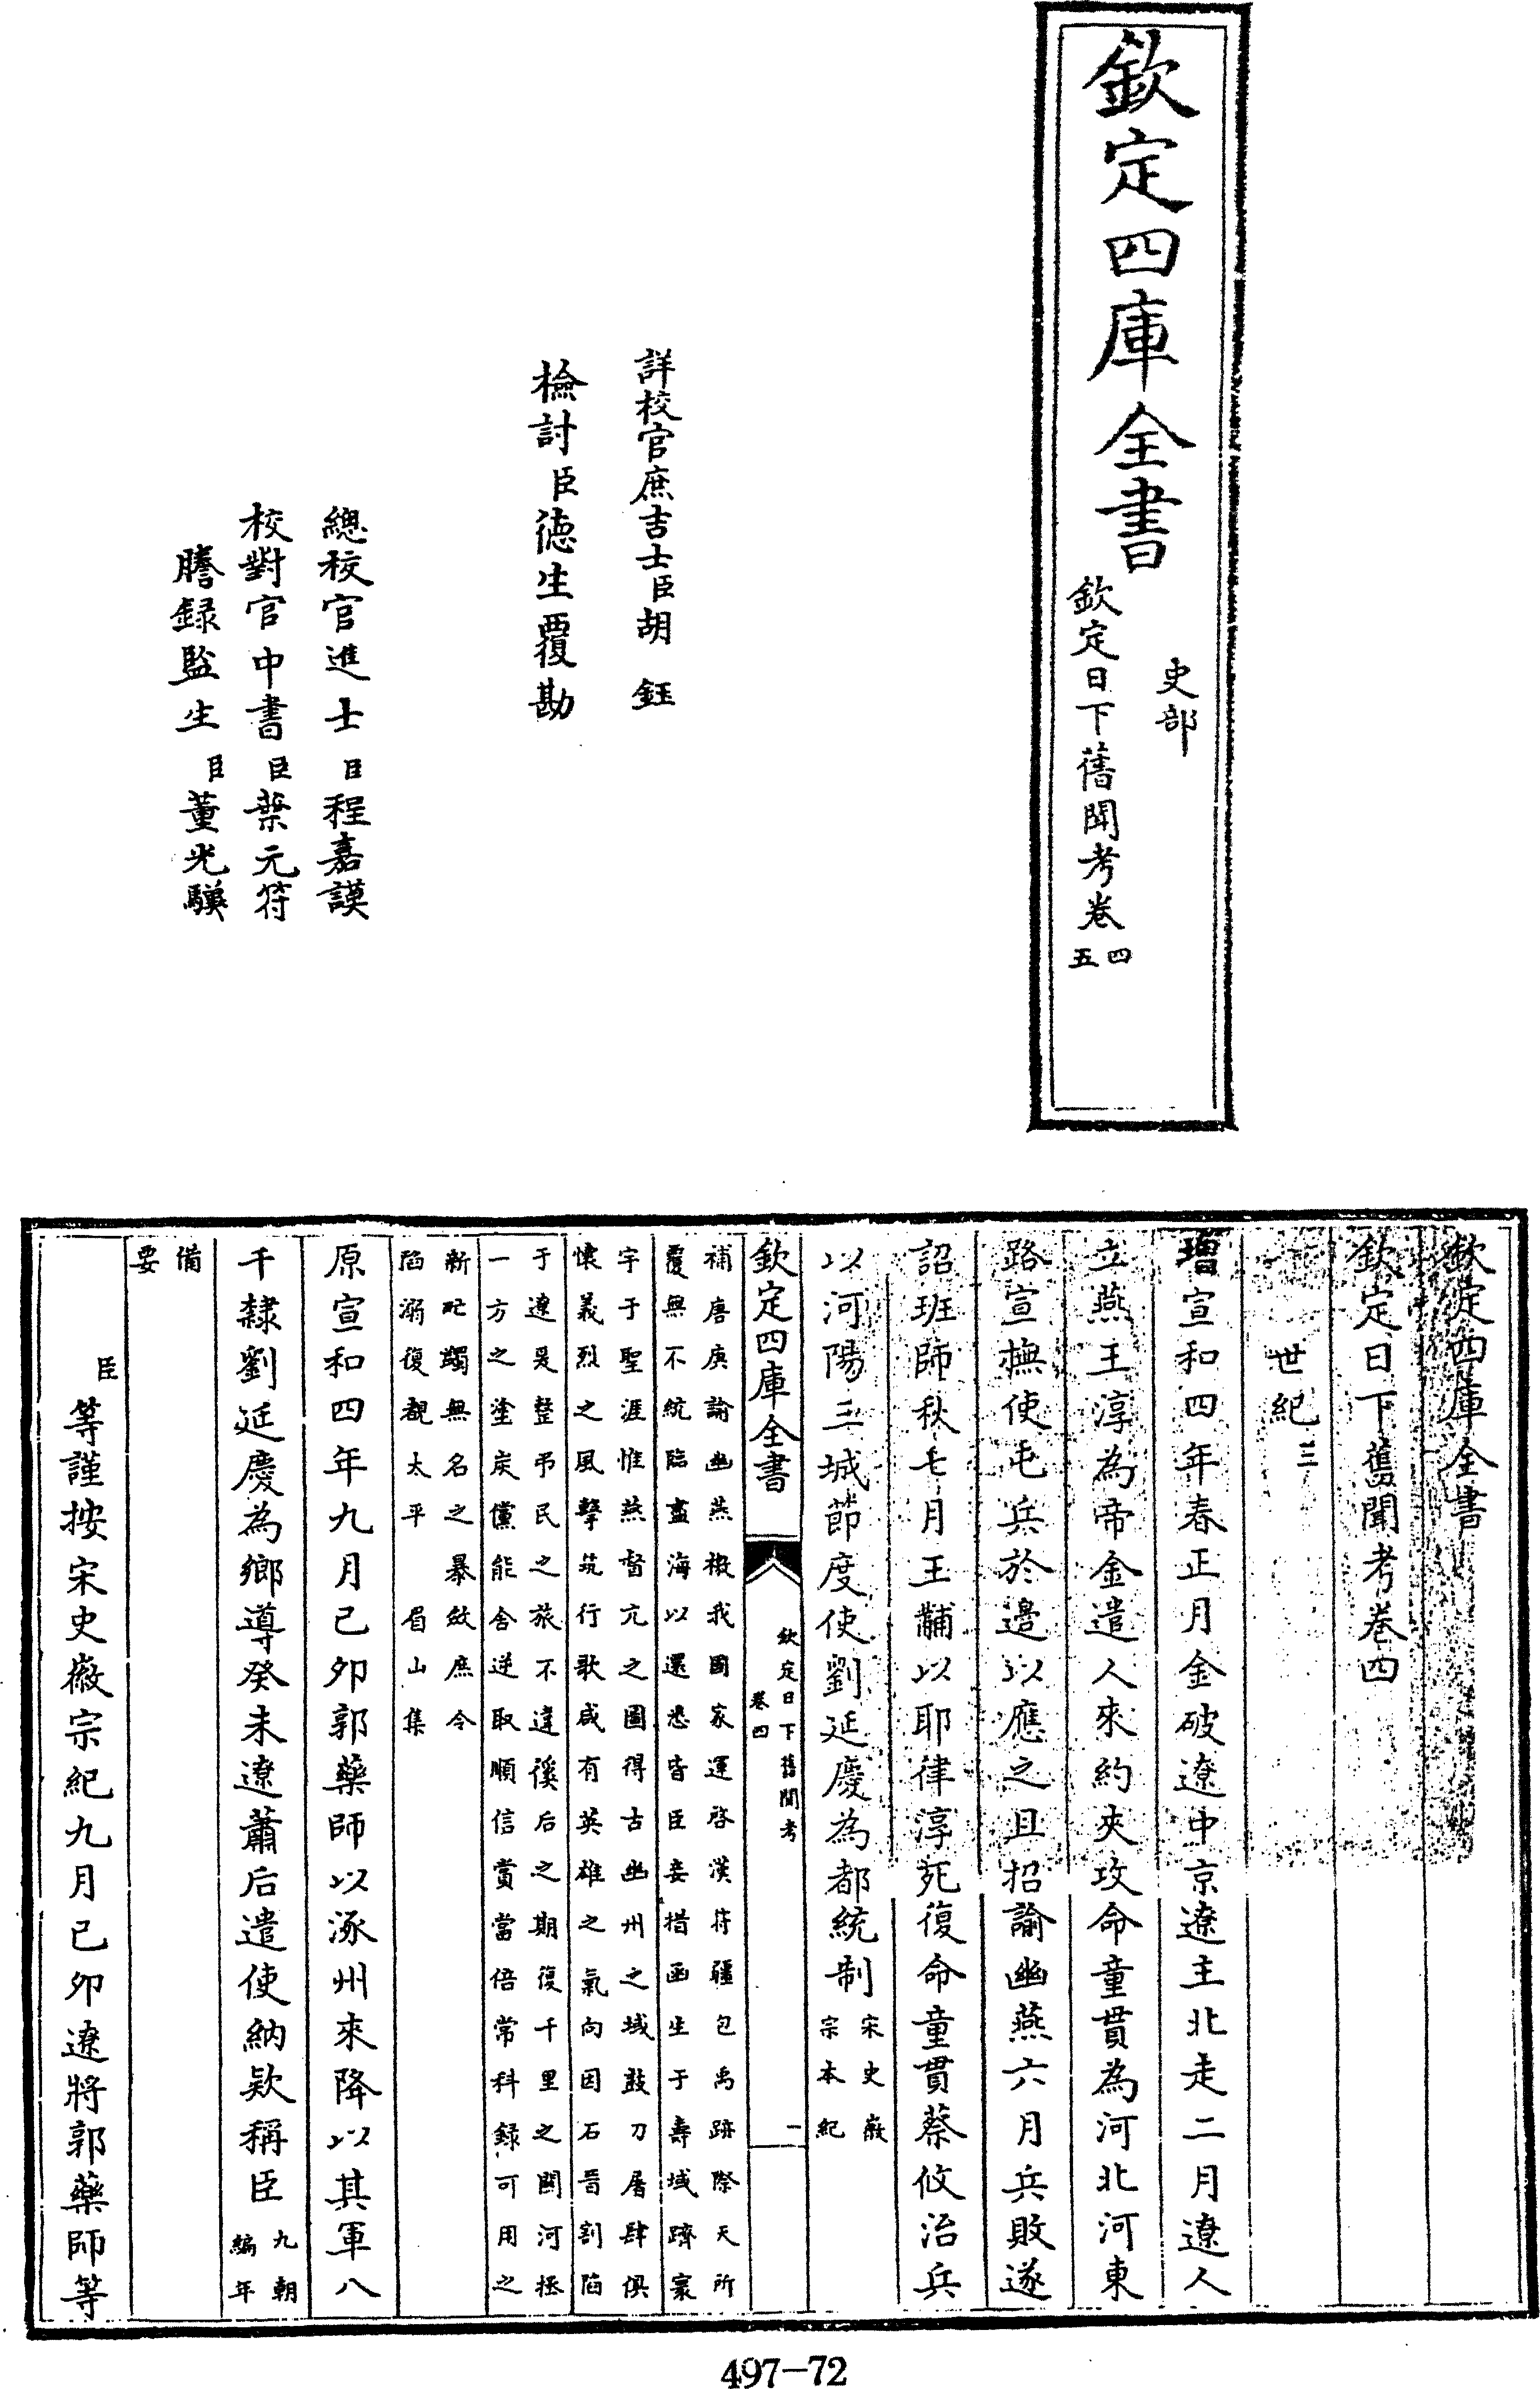 欽定四庫全書
史部
欽定日下舊聞考卷四
五
詳校官庶吉士臣胡鈺
檢討臣德生覆勘
總校官進士臣程嘉謨
校對官中書臣葉元符
謄録監生臣董光驥
欽定四庫全書
欽定日下舊聞考卷四
世紀三
增宣和四年春正月金破遼中京遼主北走二月遼人
立燕王淳為帝金遣人來約夾攻命童貫為河北河東
路宣撫使屯兵於邉以應之且招諭幽燕六月兵敗遂
詔班師秋七月王黼以耶律淳死復命童貫蔡攸治兵
以河陽三城節度使劉延慶為都統制宋史徽
宗本紀
欽定四庫全書
欽定日下舊聞考
卷四
一
補唐庚諭幽燕檄我國家運啓漢符疆包禹跡際天所
覆無不統臨盡海以還悉皆臣妾措函生于壽域躋寰
宇于聖涯惟燕督亢之圖得古幽州之域鼓刀屠肆俱
懷義烈之風擊筑行歌咸有英雄之氣向因石晉割陷
于遼爰整弔民之旅不違徯后之期復千里之關河拯
一方之塗炭儻能舍逆取順信賞當倍常科録可用之
新政蠲無名之暴斂庶令
陷溺復覩太平 眉山集
原宣和四年九月己夘郭藥師以涿州來降以其軍八
千隸劉延慶為鄉導癸未遼蕭后遣使納欵稱臣九朝
編年
備
要
臣等謹按宋史徽宗紀九月已夘遼將郭藥師等
497-72